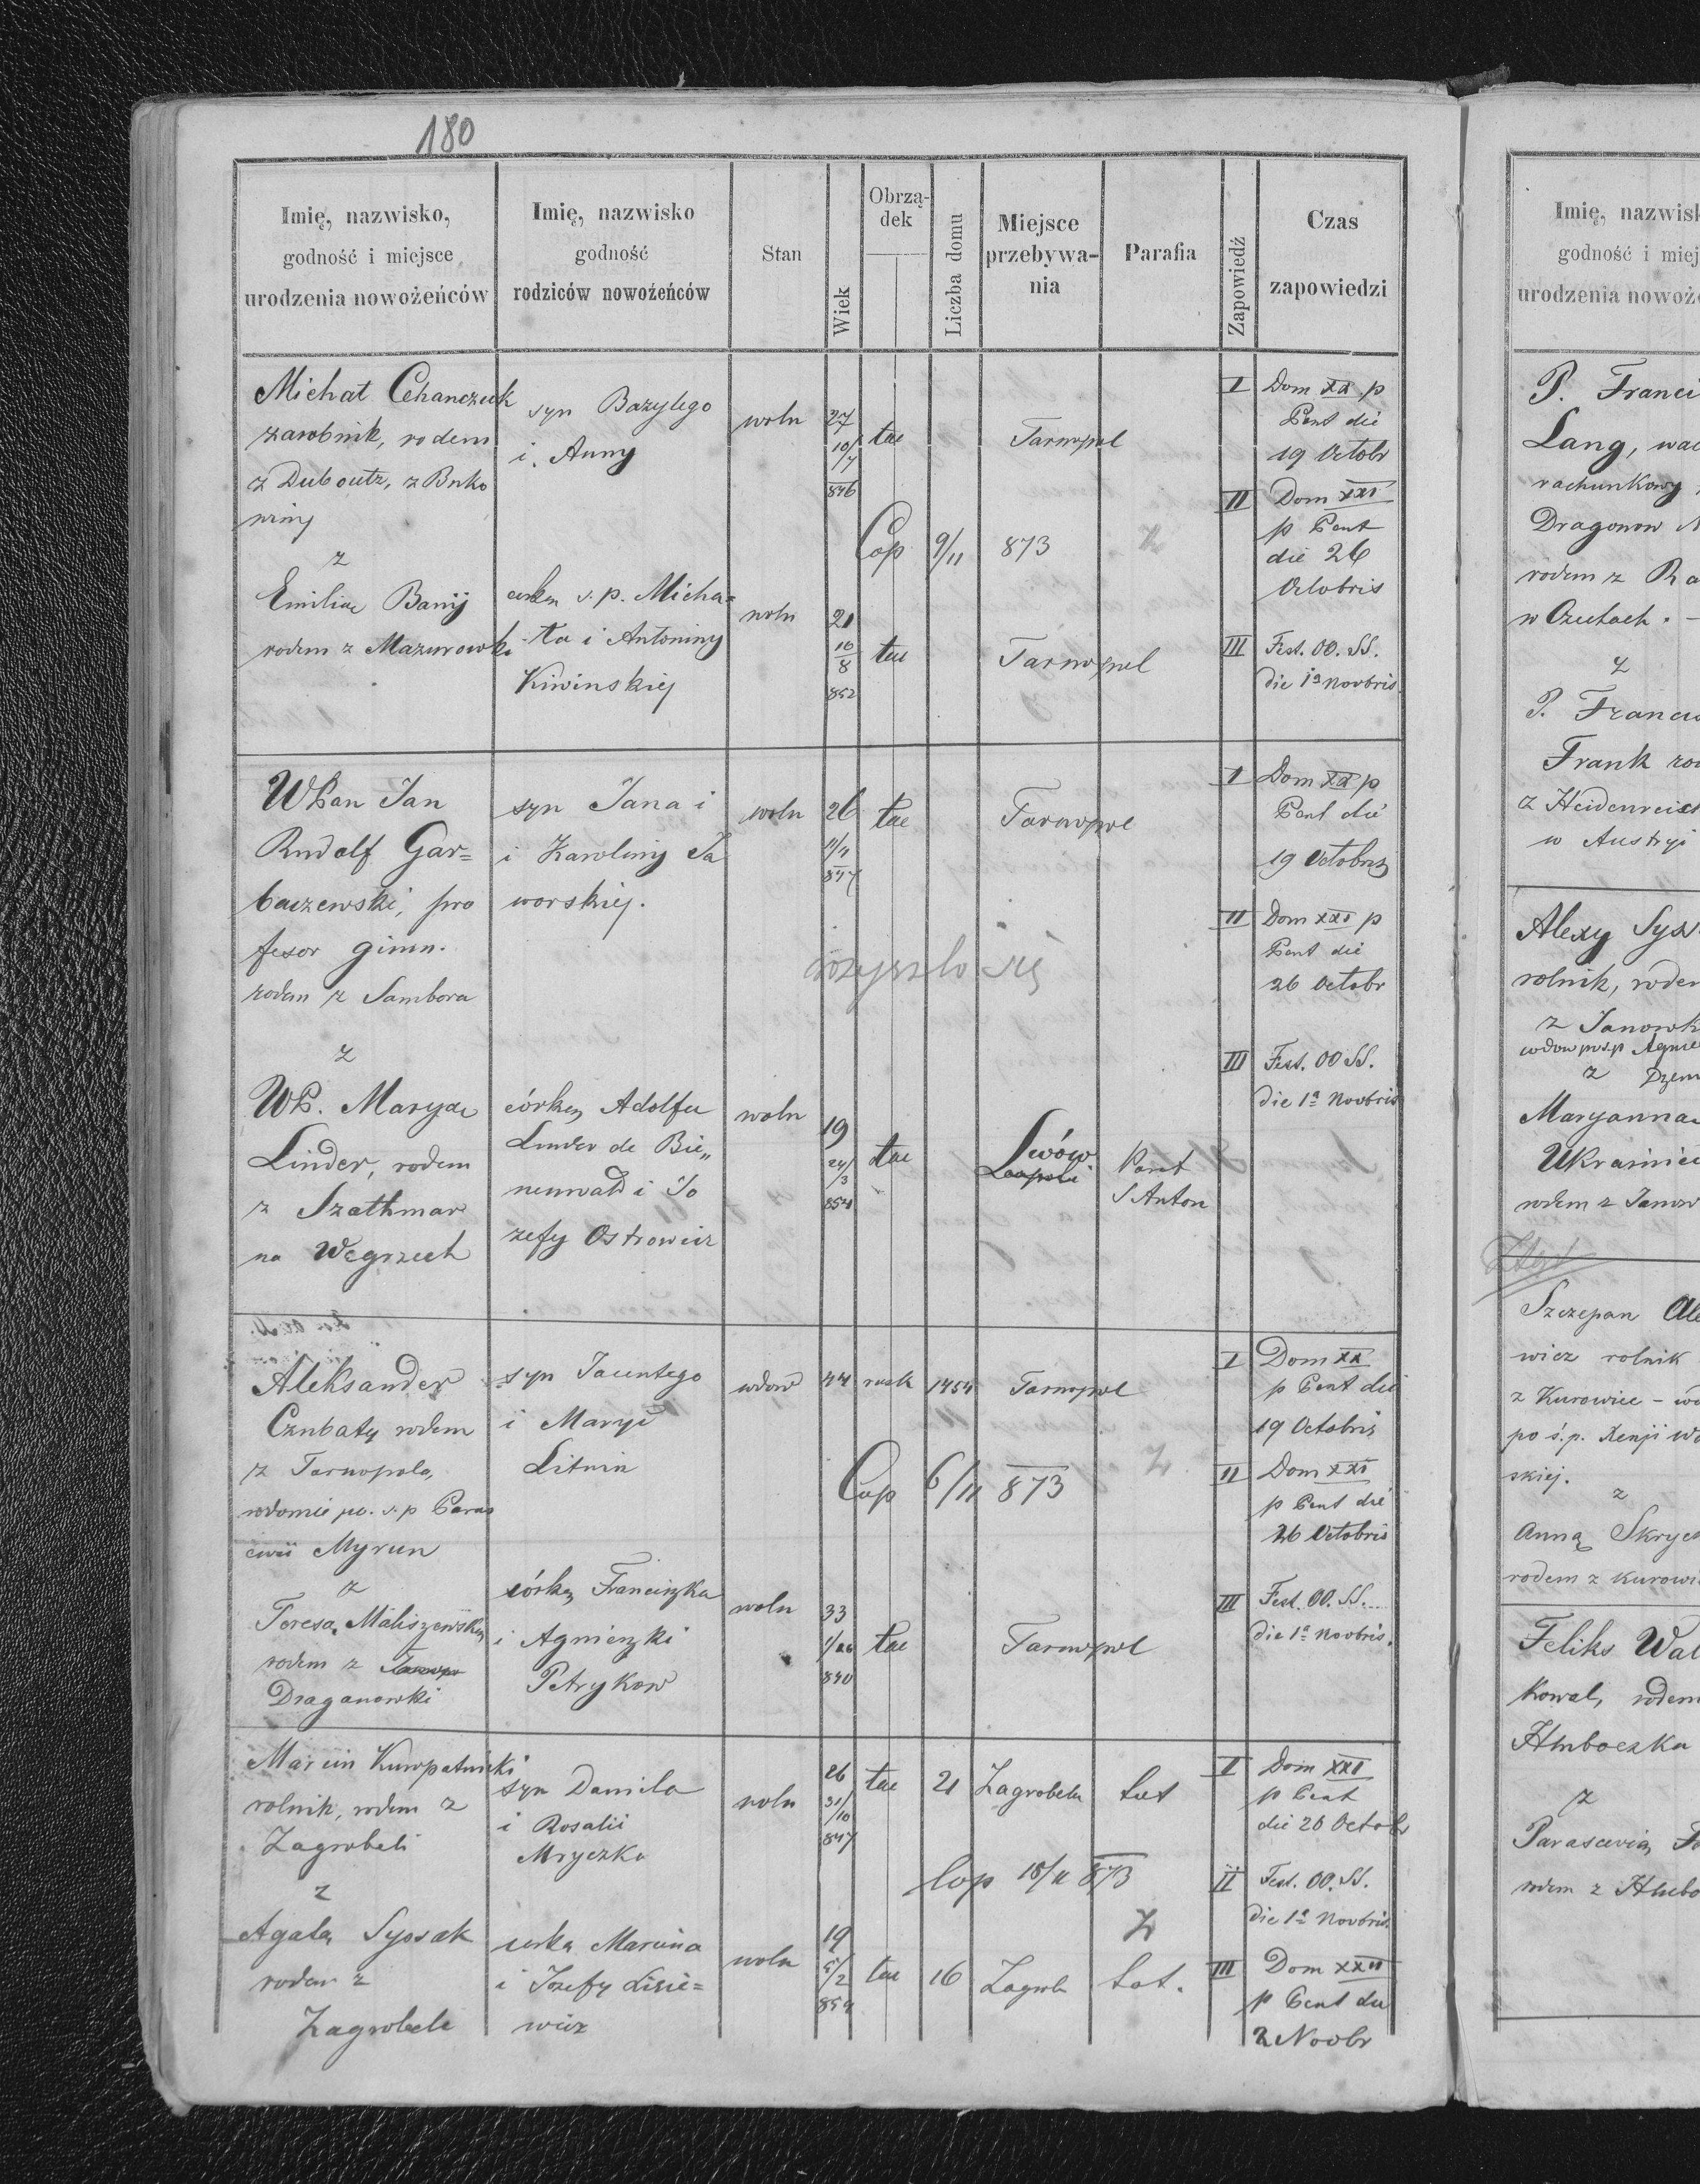 180
Imię, nazwisko,
godność i miejsce
urodzenia nowożeńców
Imię, nazwisko
godność
rodziców nowożeńców
Stan
Wiek
Obrzą-
dek
Liczba domu
Miejsce
przebywa-
nia
Parafia
Zapowiedź
Czas
zapowiedzi
Michał Cehanczuk
zarobnik, rodem
z Duboutz, z Buko
winy
z
Emilią Banij
rodem z Mazurowki
syn Bazylego
i Anny
córką s. p. Micha=
ła i Antoniny
Kiwinskiej
woln
27
10/7
846
łac
Tarnopol
Cop 9/11 873
woln
21
10/8
852
łac
Tarnopol
I Dom XX p
Pent die
19 Octobr
II Dom XXI
p Pent
die 26
Octobris
III Fest. OO. SS.
die 1a Novbris
WPan Jan
Rudolf Gar=
baczewski, pro
fesor gimn.
rodem z Sambora
z
WP. Maryą
Linder, rodem
z Szathmar
na Węgrzech
syn Jana i
i Karoliny Ja
worskiej.
córką Adolfa
Linder de Bie„
nenwald i Jo
zefy Ostrowicz
woln
26
847
łac
Tarnopol
rozeszło się
woln
19
24/3
854
łac
Lwów
Leopoli
Paraf
S Anton
I Dom XX p
Pent die
19 Octobris
II Dom XXI p
Pent die
26 Octobr
III Fest. OO SS.
die 1a Novbris
Aleksander
Czubaty rodem
z Tarnopola,
wdowiec po. s. p Paras
cewii Myrun
z
Teresą Maliszewską
rodem z
Draganowki
syn Jacentego
i Maryi
Litwin
córką Franciszka
i Agnieszki
Petrykow
wdow
44
rusk
1454
Tarnopol
Cop 6/11 873
woln
33
840
łac
Tarnopol
I Dom XX
p Pent die
19 Octobris
II Dom XXI
p Pent die
26 Octobris
III Fest. OO. SS.
die 1a Novbris.
Marcin Kuropatnicki
rolnik, rodem z
Zagrobeli
z
Agatą Sysak
rodem z
Zagrobele
syn Daniła
i Rosalii
Mryczko
córka Marcina
i Jozefy Lisie=
wicz
woln
26
31/10
847
łac
21
Zagrobela
Łat
Cop 18/11 873
woln
19
5/2
854
łac
16
Zagrob
Łat.
I Dom XXI
p Pent
die 26 Octobr
II Fest. OO. SS.
die 1a Novbris.
III Dom XXII
p Pent die
2 Novbr
Imię, nazwisk
godność i miej
urodzenia nowoże
P. Franci
Lang, wac
rachunkowy
Dragonow N
rodem z Ra
z
P. Francis
Frank rod
z Heidenreich
w Austryi
Alexy Sys
rolnik, rodem
z Janowk
wdow po s.p Agnie
z
Maryanna
Ukrainiec
rodem z Janow
Szczepan Ale
wicz rolnik
z Kurowiec - wd
po ś. p. Xenji Wo
skiej.
z
Anną Skrycz
rodem z Kurowi
Feliks Wal
Kowal, rodem
Hłuboczka
z
Parascevią
rodem z Hłubo